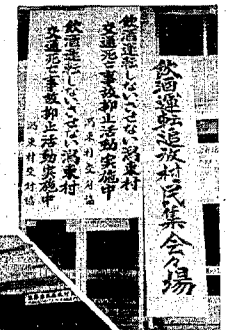 飲酒運転追放村民集会々場
飲酒運転しない、させない潟東村
交通死亡事故抑止活動実施中
潟東村交対協
飲酒運転しない、させない潟東村
交通死亡事故抑止活動実施中
潟東村交対協